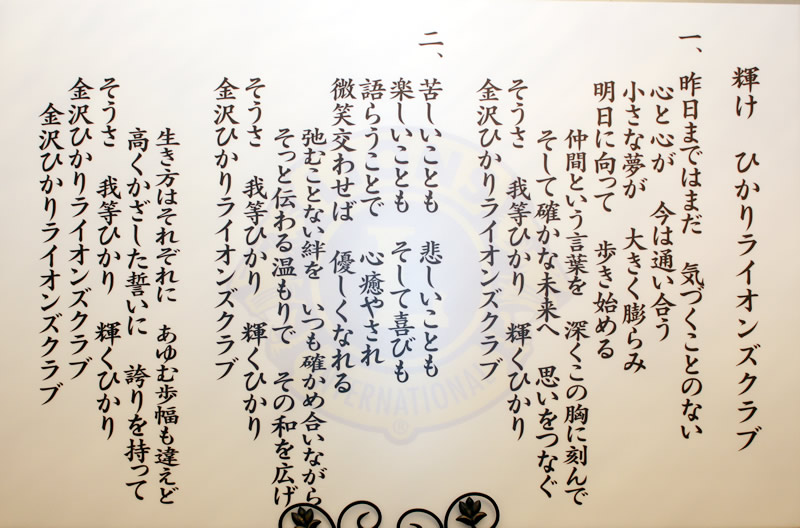 輝け　ひかりライオンズクラブ
一、昨日まではまだ　気づくことのない
心と心が　今は通い合う
小さな夢が　大きく膨らみ
明日に向って　歩き始める
仲間という言葉を　深くこの胸に刻んで
そして確かな未来へ　思いをつなぐ
そうさ　我等ひかり　輝くひかり
金沢ひかりライオンズクラブ
二、苦しいことも　悲しいことも
楽しいことも　そして喜びも
語らうことで　心癒やされ
微笑交わせば　優しくなれる
弛むことない絆を　いつも確かめ合いながら
そっと伝わる温もりで　その和を広げ
そうさ　我等ひかり　輝くひかり
金沢ひかりライオンズクラブ
生き方はそれぞれに　あゆむ歩幅も違えど
高くかざした誓いに　誇りを持って
そうさ　我等ひかり　輝くひかり
金沢ひかりライオンズクラブ
金沢ひかりライオンズクラブ
INTERNATIONAL
®